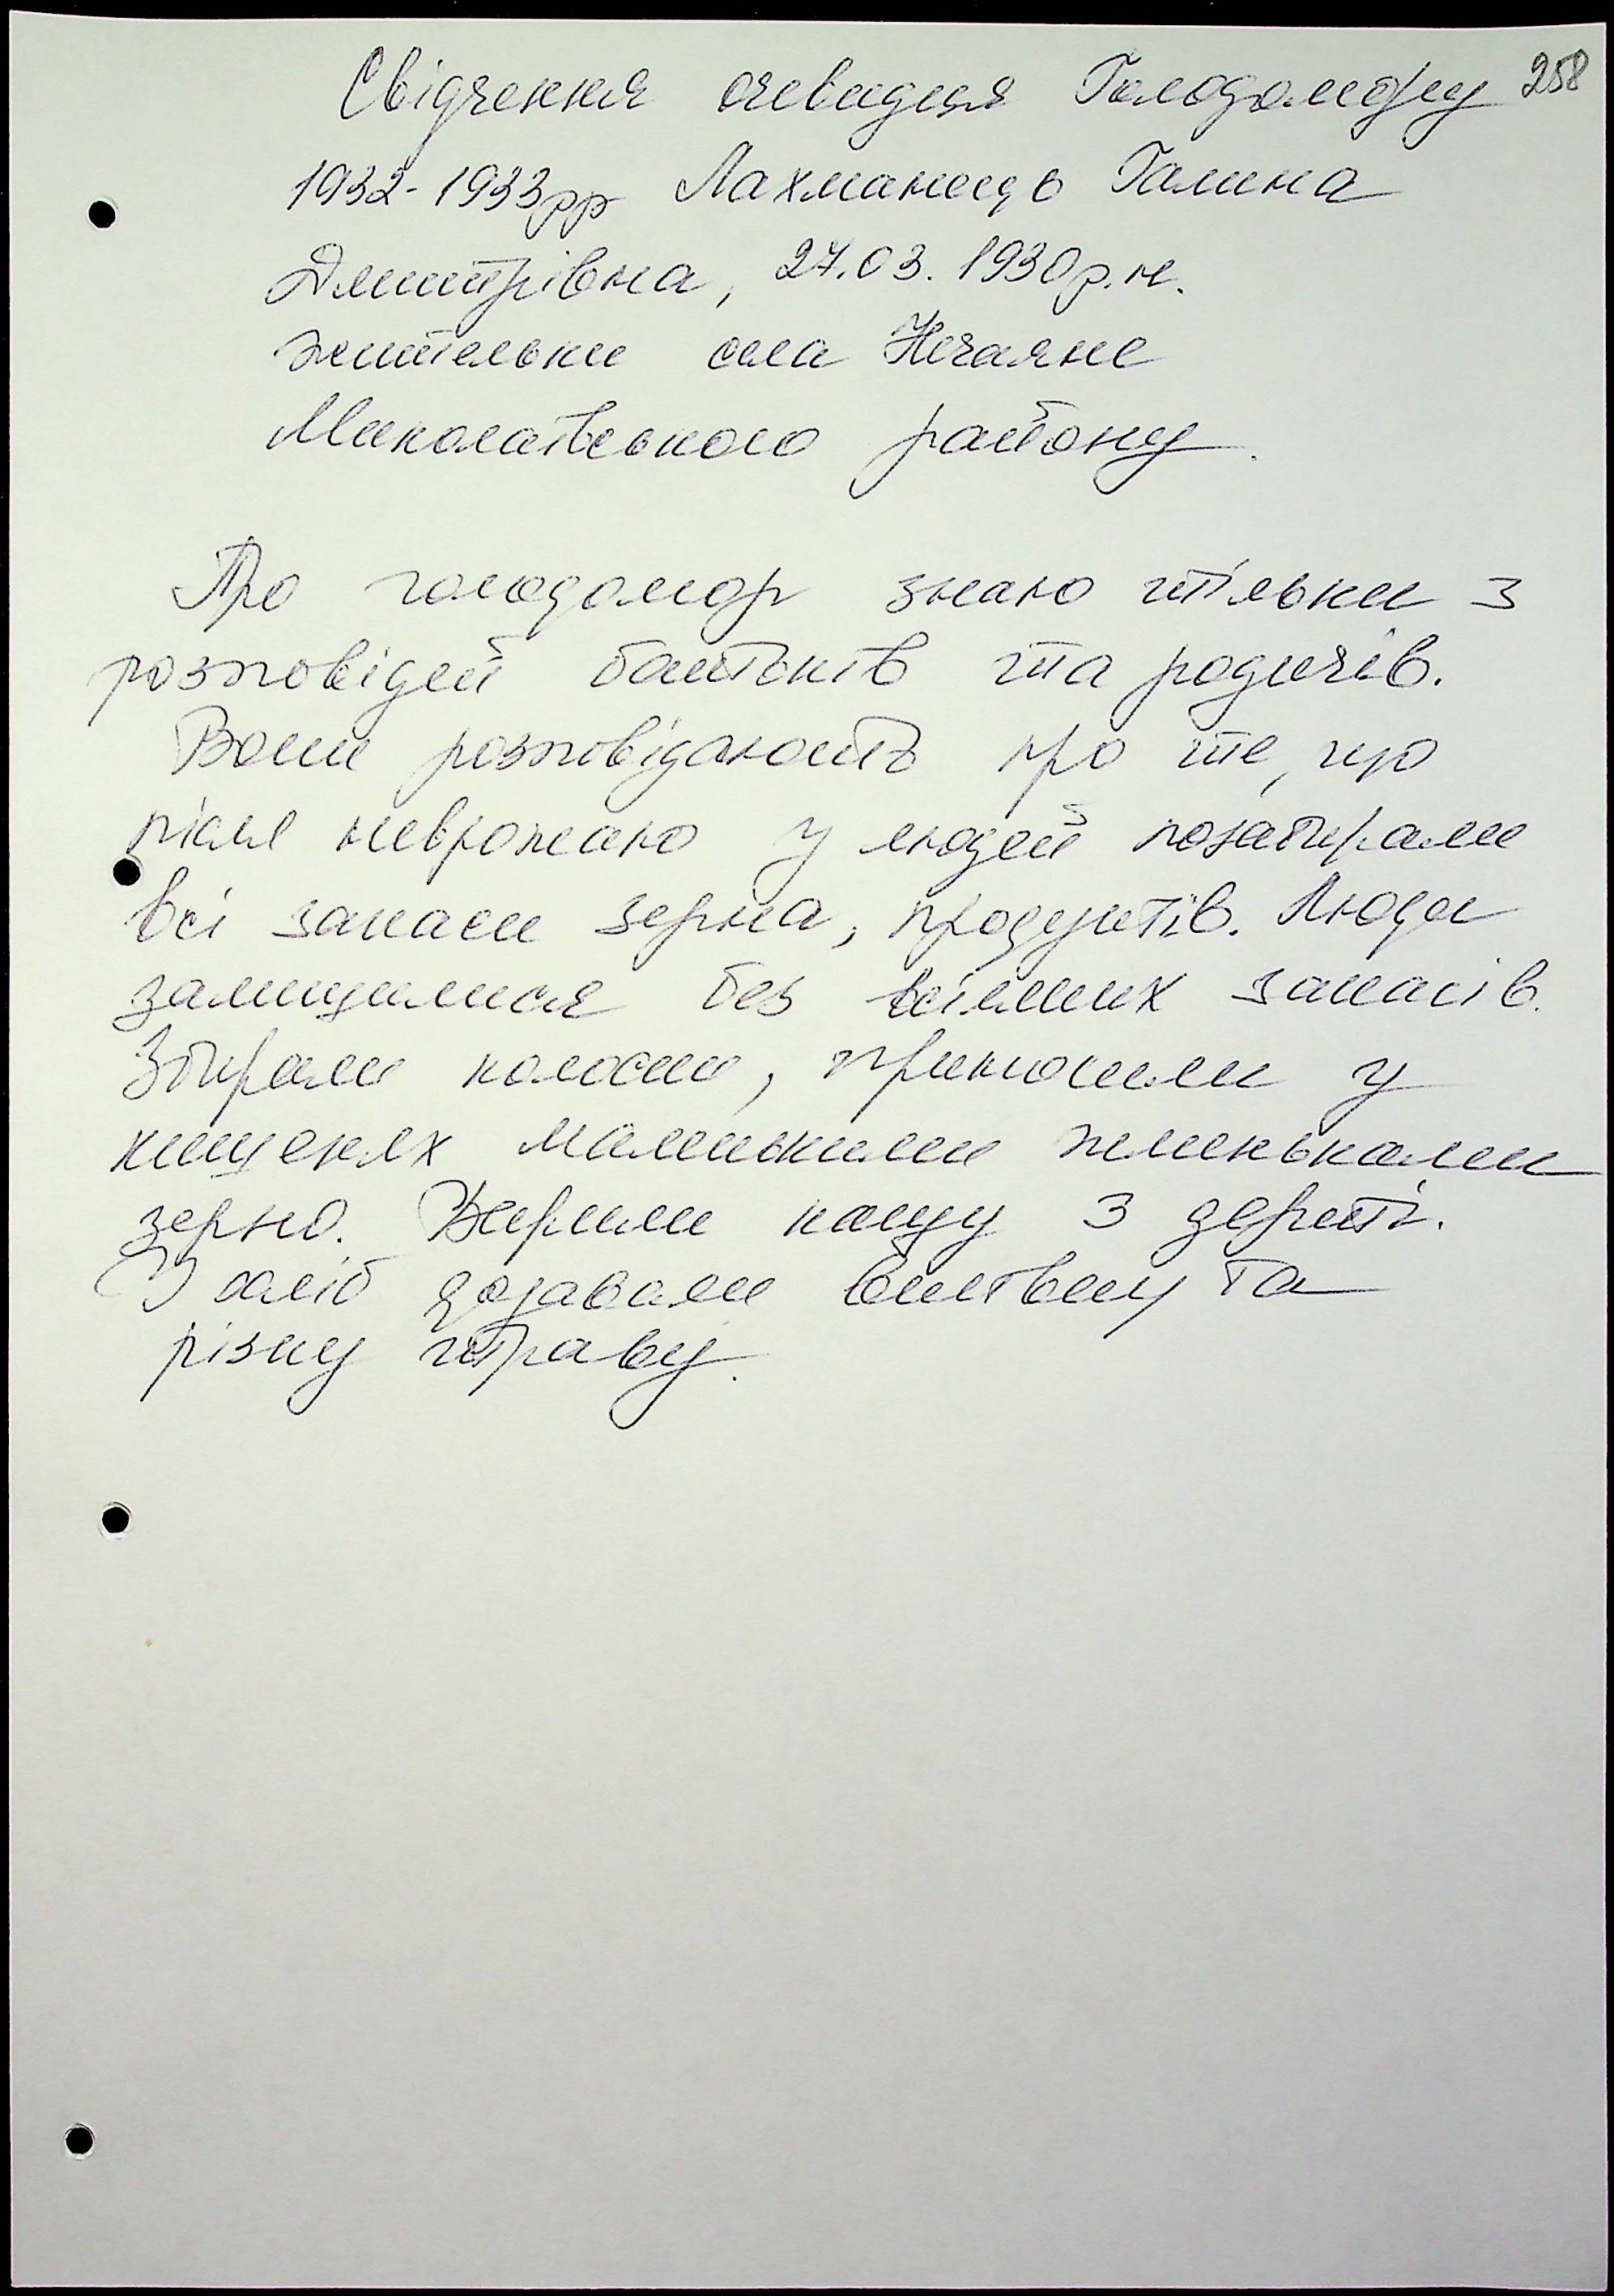 258
Свідчення очевидця Голодомору
1932-1933рр Лахманець Галина
Дмитрівна, 27.03.1930р.н.
жительки села Нечаяне
Миколаївського району.
Про голодомор знаю тільки з
розповідей батьків та родичів.
Вони розповідають про те, що
після неврожаю у людей позабирали
всі запаси зерна, продуктів. Люди
залишилися без всіляких запасів.
Збирали колоски, приносили у
кишенях маленькими жменьками
зерно. Варили кашу з дерті.
У хліб додавали ботвину та
різну траву.